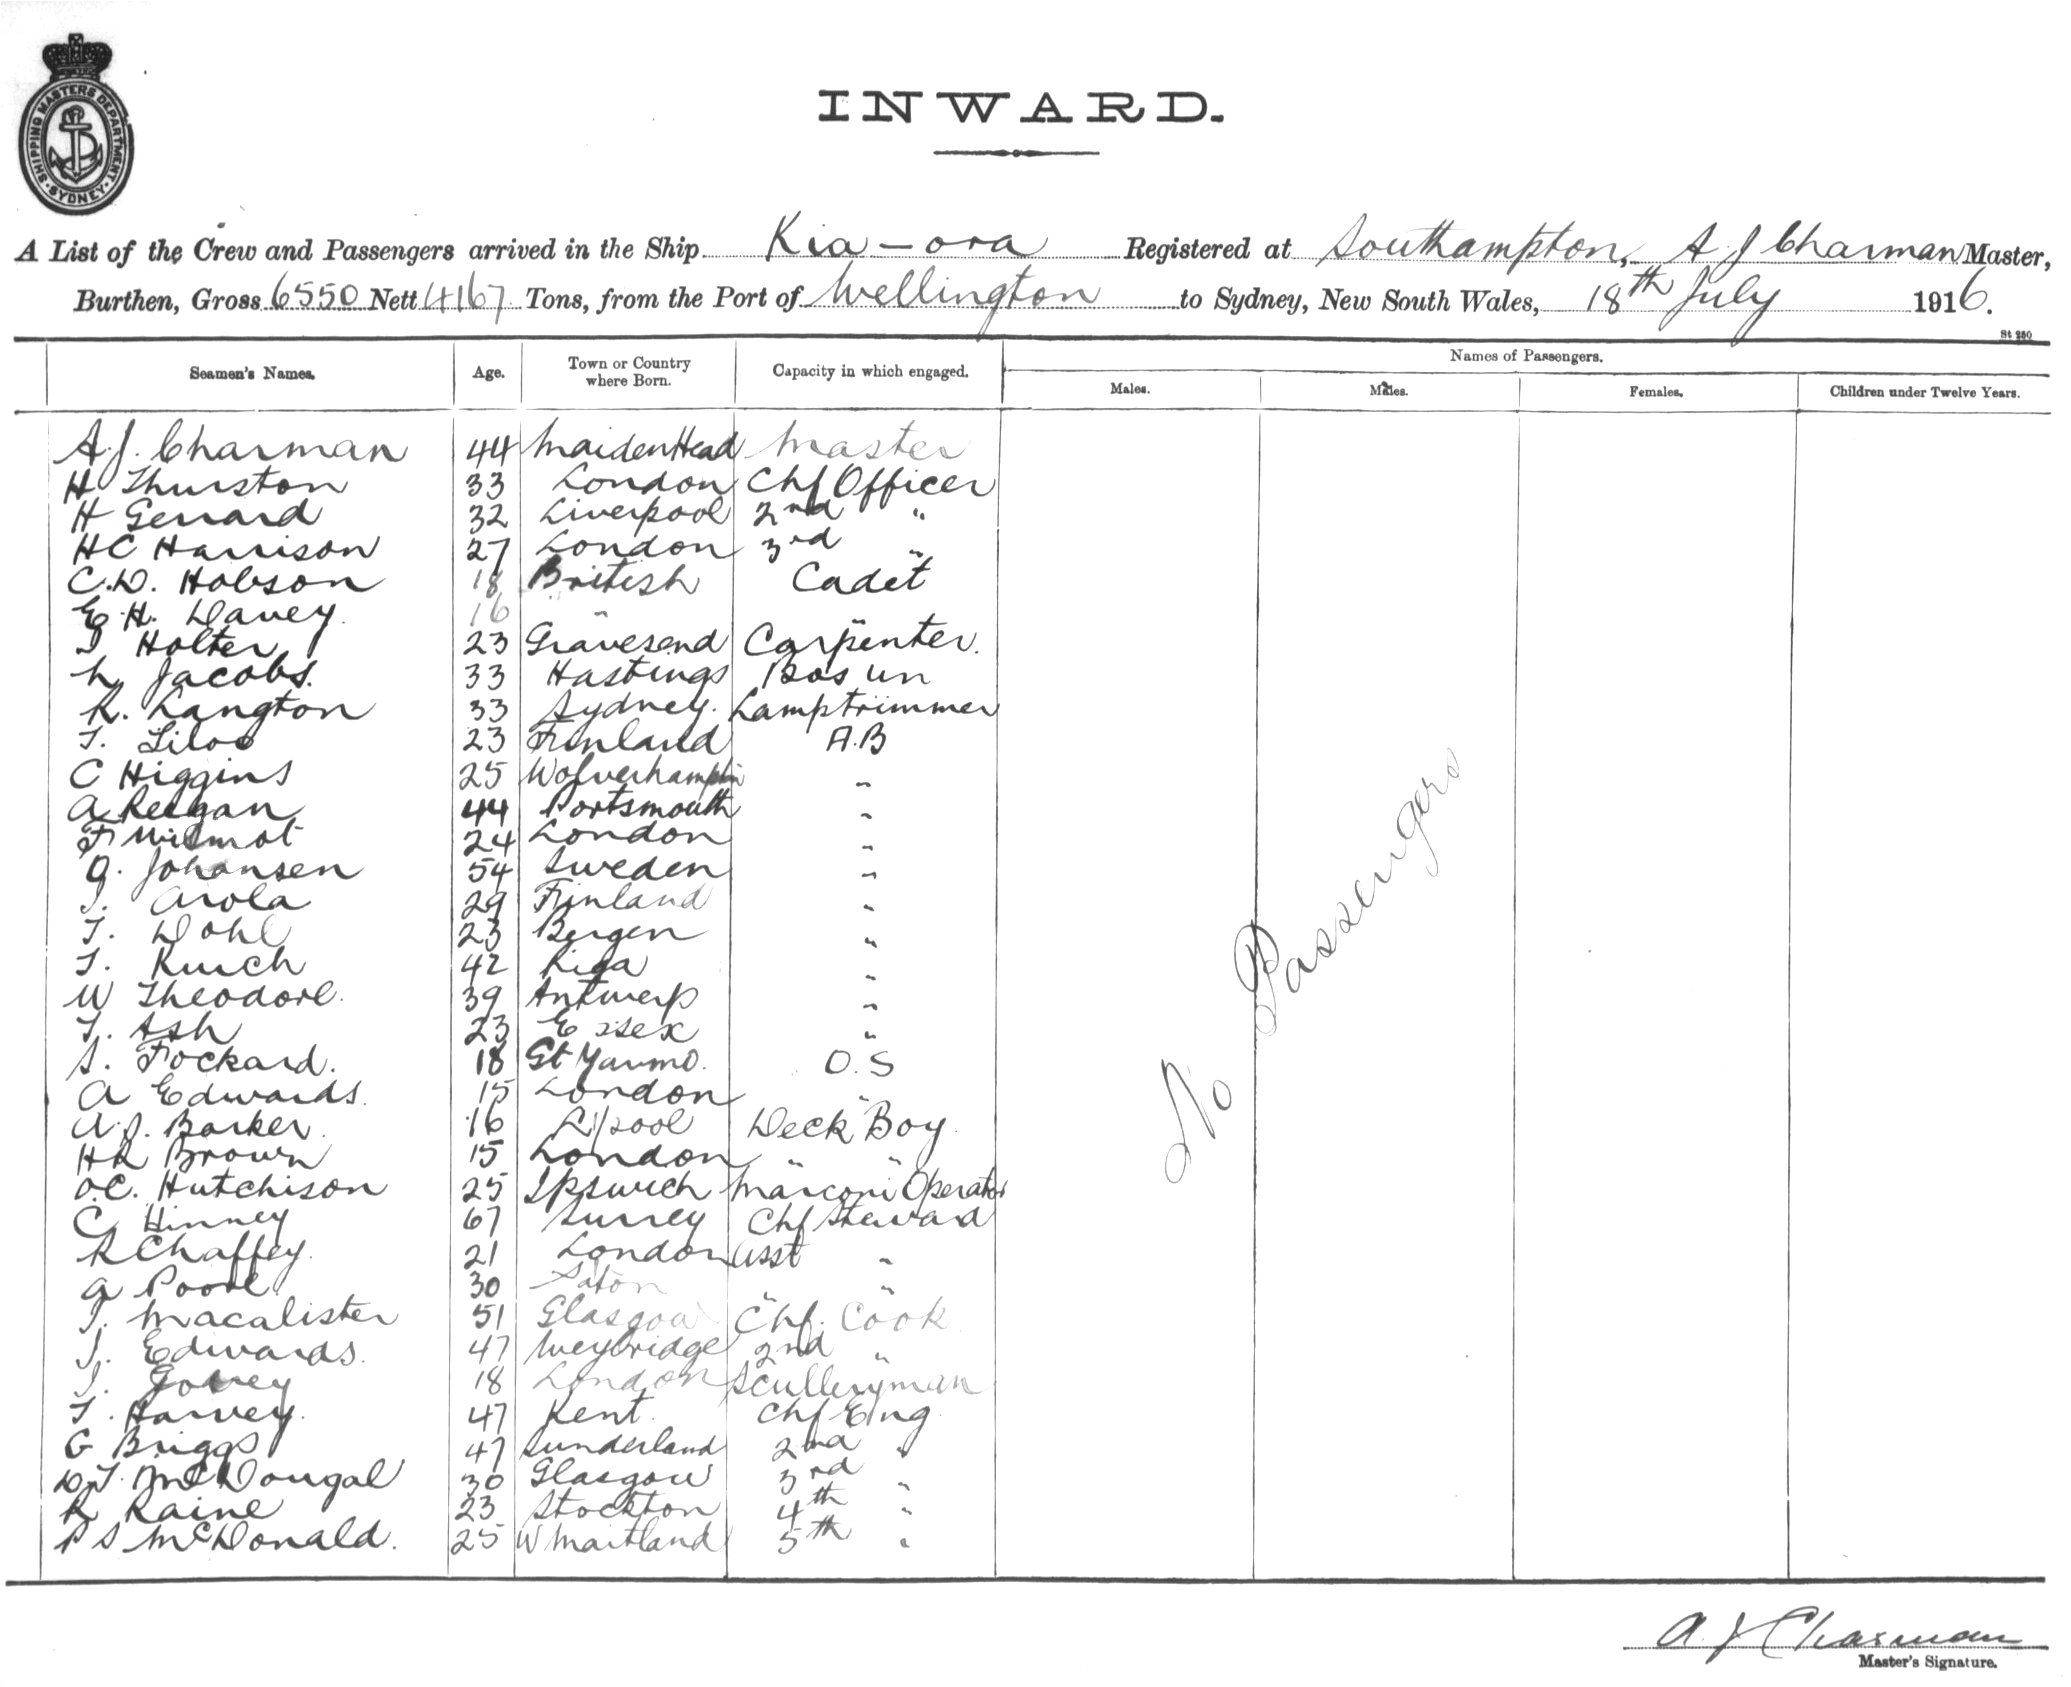 SHIPPING MASTERS DEPARTMENT SYDNEY
INWARD.
A List of the Crew and Passengers arrived in the Ship Kia-ora Registered at Southampton, A J Charman Master,
Burthen, Gross 6550 Nett 4167 Tons, from the Port of Wellington to Sydney, New South Wales, 18th July 1916.
St 280
Seamen's Names. Age. Town or Country where Born. Capacity in which engaged. Names of Passengers.
Males. Males. Females. Children under Twelve Years.
A.J. Charman 44 MaidenHead Master
H Thurston 33 London Chf Officer
H Gerrard 32 Liverpool 2nd "
HC Harrison 27 London 3rd "
C.D. Hobson 18 British Cadet
E.H. Davey 16 " "
Holter 23 Gravesend Carpenter.
Jacobs. 33 Hastings Bos un
R. Langton 33 Sydney. Lamptrimmer
T. Liloo 23 Finland A.B
C Higgins 25 Wolverhampton "
A Reegan 44 Portsmouth "
F Wilmot 24 London "
Johansen 54 Sweden "
Arola 29 Finland "
T. Dohl 23 Bergen "
T. 42 Riga "
W Theodore. 39 Antwerp "
T. Ash 23 Essex "
S. Fockard. 18 Gt Yarmo. O.S
A Edwards. 15 London "
A.J. Barker. 16 L/pool Deck Boy
HR Brown 15 London " "
O.C. Hutchison 25 Ipswich Marconi Operator
C Hinney 67 Surrey Chf Steward
R Chaffey. 21 London Asst "
A Poore 30 " "
J. Macalister 51 Glasgow Chf. Cook
J. Edwards. 47 Weybridge 2nd "
18 London Sculleryman
T. Harvey. 47 Kent. Chf Eng
G Briggs 47 Sunderland 2nd "
D.J. McDougal 30 Glasgow 3rd "
R Raine 23 Stockton 4th "
P S McDonald. 25 W Maitland 5th "
No Passengers
A. J Charman
Master's Signature.